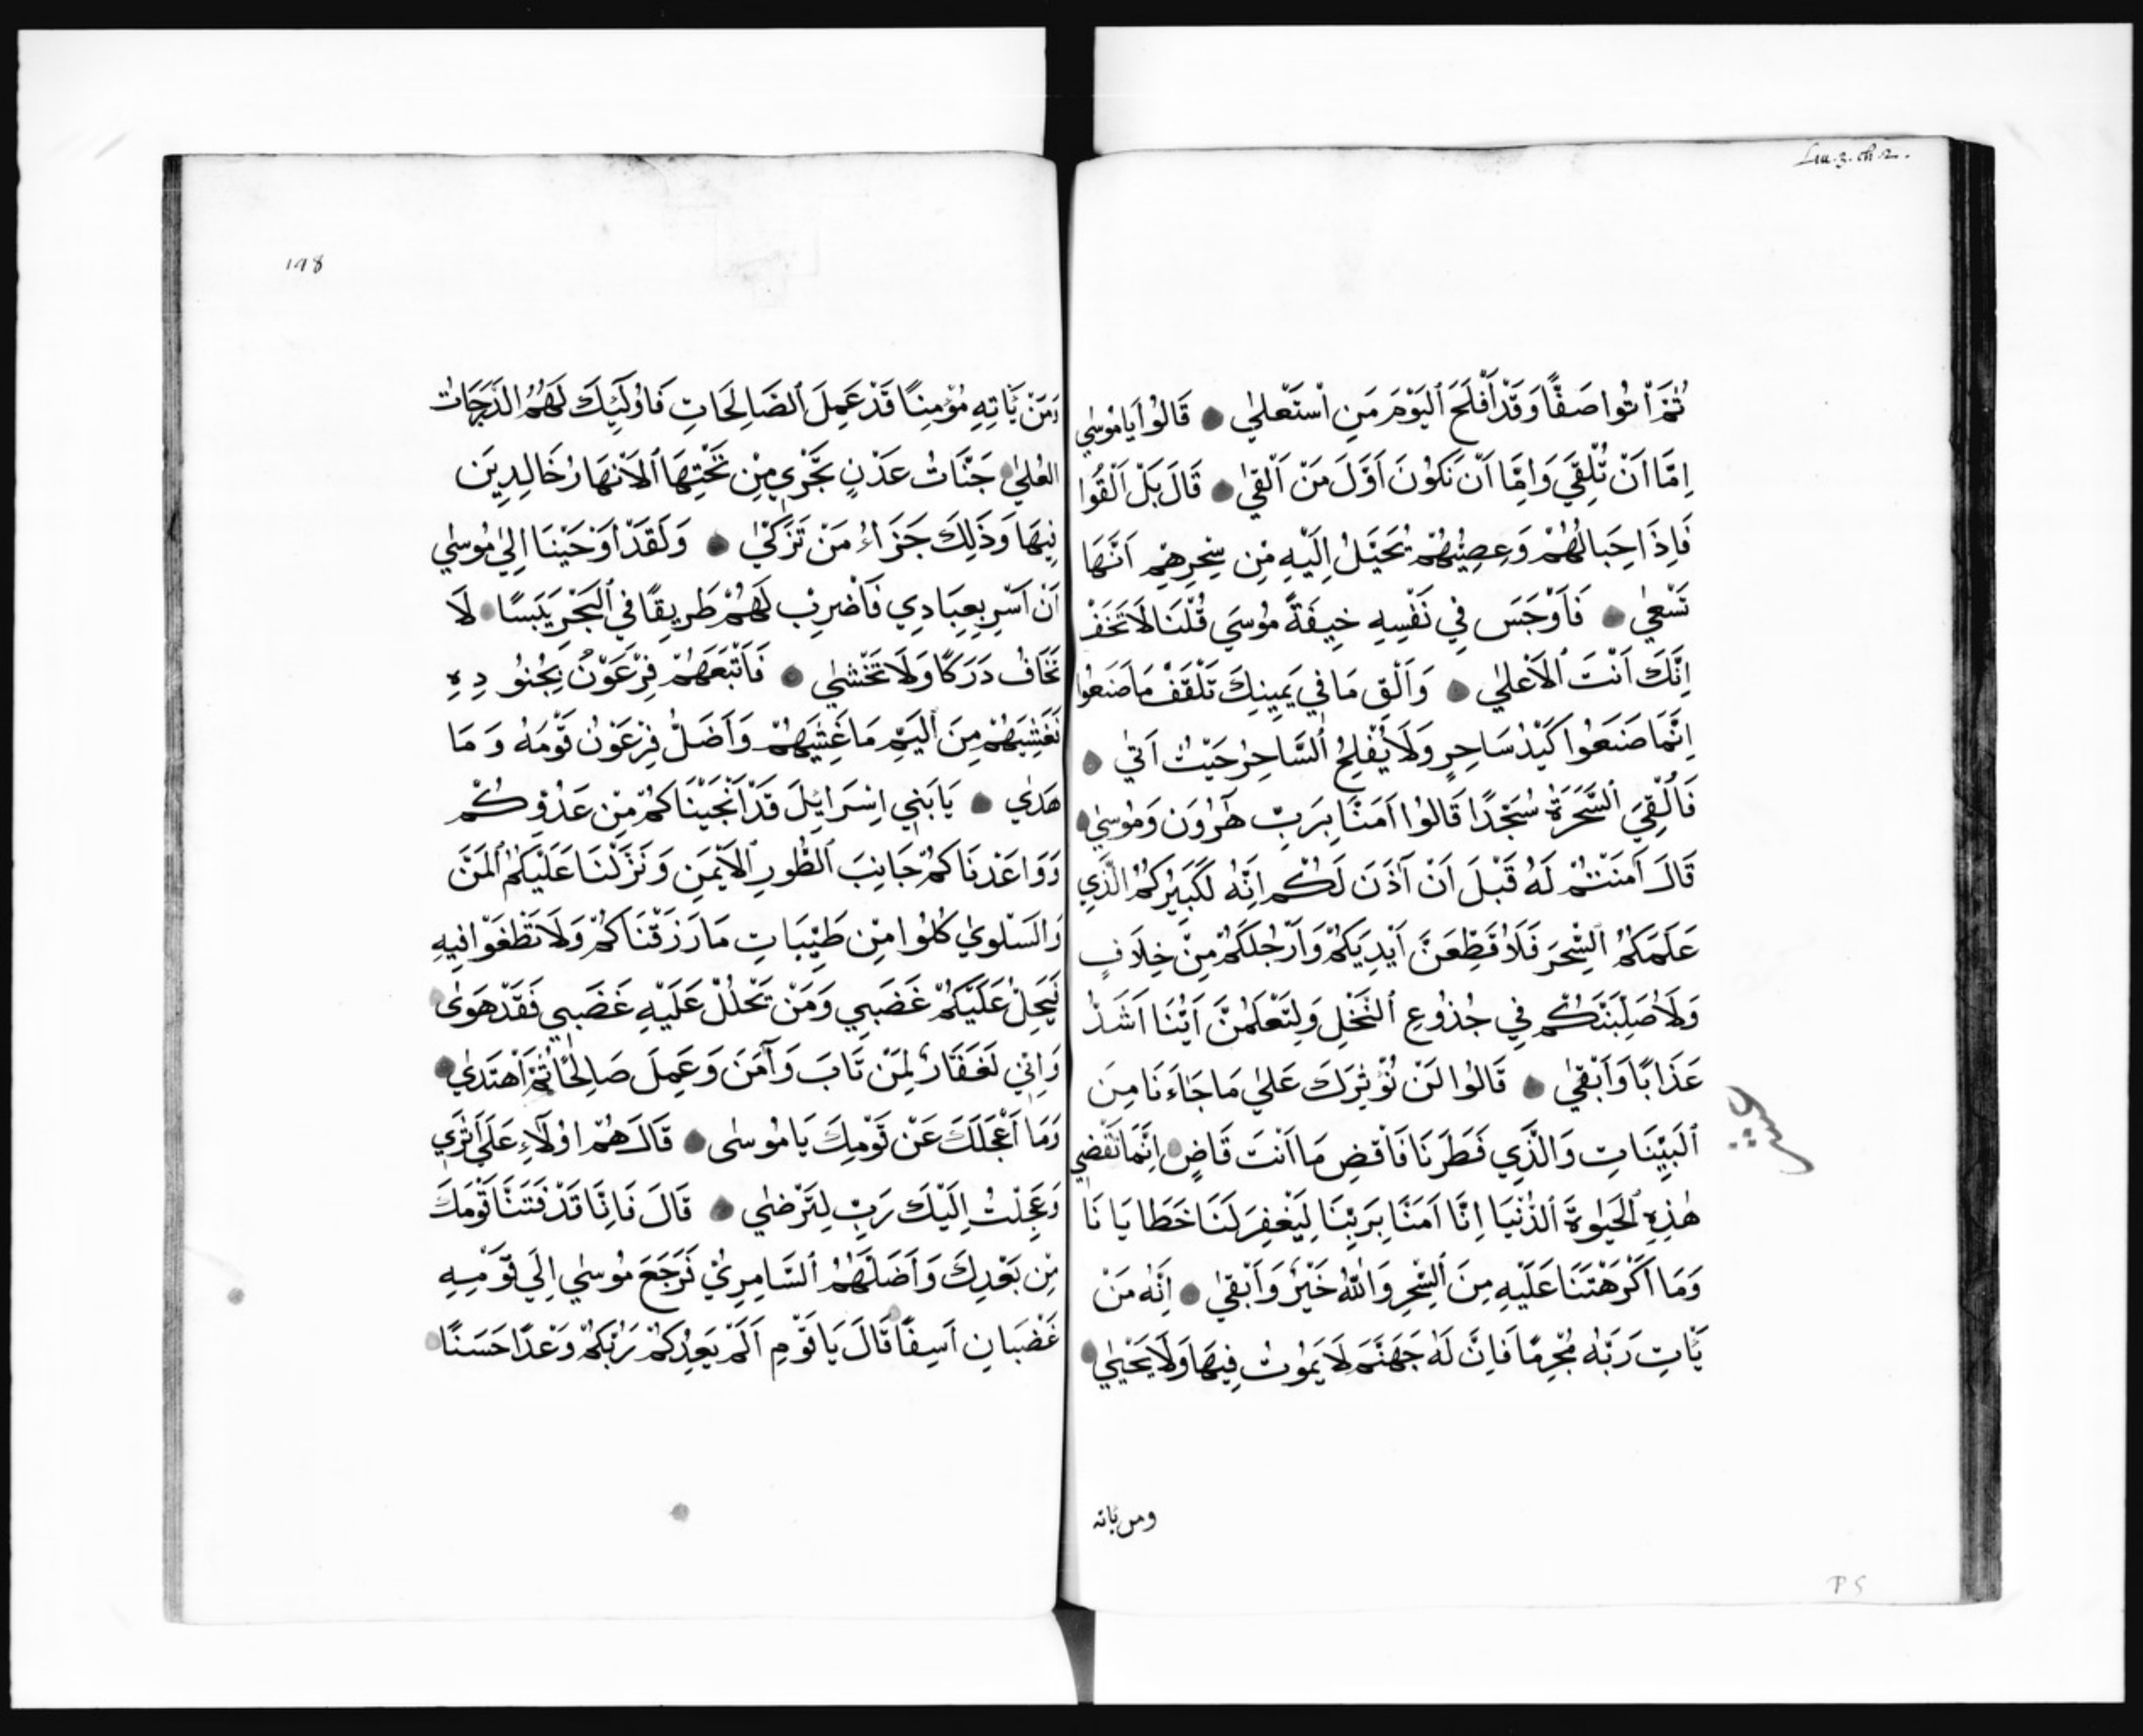 Luu.3.ch.2.
ثُمَّ أْتُوا صَفًّا وَقَدْ أَفْلَحَ ٱلْيَوْمَ مَنِ ٱسْتَعْلٰي قَالُوا يَا مُوسٰي
اِمَّا اَنْ تُلْقِيَ وَاِمَّا اَنْ نَكُونَ اَوَّلَ مَنْ اَلْقٰي قَالَ بَلْ اَلْقُوا
فَاِذَا حِبَالُهُمْ وَعِصِيُّهُمْ يُخَيَّلُ اِلَيْهِ مِنْ سِحْرِهِمْ اَنَّهَا
تَسْعٰي فَاَوْجَسَ فِي نَفْسِهِ خِيفَةً مُوسَي قُلْنَا لَا تَخَفْ
اِنَّكَ اَنْتَ ٱلْاَعْلٰي وَاَلْقِ مَا فِي يَمِينِكَ تَلْقَفْ مَا صَنَعُوا
اِنَّمَا صَنَعُوا كَيْدُ سَاحِرٍ وَلَا يُفْلِحُ ٱلسَّاحِرُ حَيْثُ اَتٰي
فَاُلْقِيَ ٱلسَّحَرَةُ سُجَّدًا قَالُوا اَمَنَّا بِرَبِّ هٰرُونَ وَمُوسٰي
قَالَ اَمَنْتُمْ لَهُ قَبْلَ اَنْ آذَنَ لَكُمْ اِنَّهُ لَكَبِيرُكُمُ الَّذِي
عَلَّمَكُمُ ٱلسِّحْرَ فَلَاُقَطِّعَنَّ اَيْدِيَكُمْ وَاَرْجُلَكُمْ مِنْ خِلَافٍ
وَلَاُصَلِّبَنَّكُمْ فِي جُذُوعِ ٱلنَّخْلِ وَلِتَعْلَمُنَّ اَيُّنَا اَشَدُّ
عَذَابًا وَاَبْقٰي قَالُوا لَنْ نُؤْثِرَكَ عَلٰي مَا جَاءَنَا مِنَ
ٱلْبَيِّنَاتِ وَالَّذِي فَطَرَنَا فَاقْضِ مَا اَنْتَ قَاضٍ اِنَّمَا تَقْضِي
هٰذِهِ ٱلْحَيٰوةَ ٱلدُّنْيَا اِنَّا اَمَنَّا بِرَبِّنَا لِيَغْفِرَ لَنَا خَطَايَانَا
وَمَا اَكْرَهْتَنَا عَلَيْهِ مِنَ ٱلسِّحْرِ وَاللّٰهُ خَيْرٌ وَاَبْقٰي اِنَّهُ مَنْ
يَّاْتِ رَبَّهُ مُجْرِمًا فَاِنَّ لَهُ جَهَنَّمَ لَا يَمُوتُ فِيهَا وَلَا يَحْيٰي
ومن ياته
P S
198
وَمَنْ يَّاْتِهِ مُؤْمِنًا قَدْ عَمِلَ ٱلصَّالِحَاتِ فَاُولَٰئِكَ لَهُمُ الدَّرَجَاتُ
العُلٰي جَنَّاتُ عَدْنٍ تَجْرِي مِنْ تَحْتِهَا ٱلْاَنْهَارُ خَالِدِينَ
فِيهَا وَذَلِكَ جَزَاءُ مَنْ تَزَكّٰي وَلَقَدْ اَوْحَيْنَا اِلٰي مُوسٰي
اَنْ اَسْرِ بِعِبَادِي فَاَضْرِبْ لَهُمْ طَرِيقًا فِي ٱلْبَحْرِ يَبَسًا لَا
تَخَافُ دَرَكًا وَلَا تَخْشٰي فَاَتْبَعَهُمْ فِرْعَوْنُ بِجُنُودِهِ
فَغَشِيَهُمْ مِنَ ٱلْيَمِّ مَا غَشِيَهُمْ وَاَضَلَّ فِرْعَوْنُ قَوْمَهُ وَمَا
هَدٰي يَا بَنِي اِسْرَائِلَ قَدْ اَنْجَيْنَاكُمْ مِنْ عَدُوِّكُمْ
وَوَاعَدْنَاكُمْ جَانِبَ ٱلطُّورِ ٱلْاَيْمَنِ وَنَزَّلْنَا عَلَيْكُمُ ٱلْمَنَّ
وَالسَّلْوٰي كُلُوا مِنْ طَيِّبَاتِ مَا رَزَقْنَاكُمْ وَلَا تَطْغَوْا فِيهِ
فَيَحِلَّ عَلَيْكُمْ غَضَبِي وَمَنْ يَحْلُلْ عَلَيْهِ غَضَبِي فَقَدْ هَوٰى
وَاِنِّي لَغَفَّارٌ لِمَنْ تَابَ وَآمَنَ وَعَمِلَ صَالِحًا ثُمَّ اَهْتَدٰي
وَمَا اَعْجَلَكَ عَنْ قَوْمِكَ يَا مُوسٰى قَالَ هُمْ اُولَاءِ عَلَي اَثَرِي
وَعَجِلْتُ اِلَيْكَ رَبِّ لِتَرْضٰي قَالَ فَاِنَّا قَدْ فَتَنَّا قَوْمَكَ
مِنْ بَعْدِكَ وَاَضَلَّهُمُ ٱلسَّامِرِيُّ فَرَجَعَ مُوسٰي اِلَي قَوْمِهِ
غَضْبَانِ اَسِفًا قَالَ يَا قَوْمِ اَلَمْ يَعِدْكُمْ رَبُّكُمْ وَعْدًا حَسَنًا